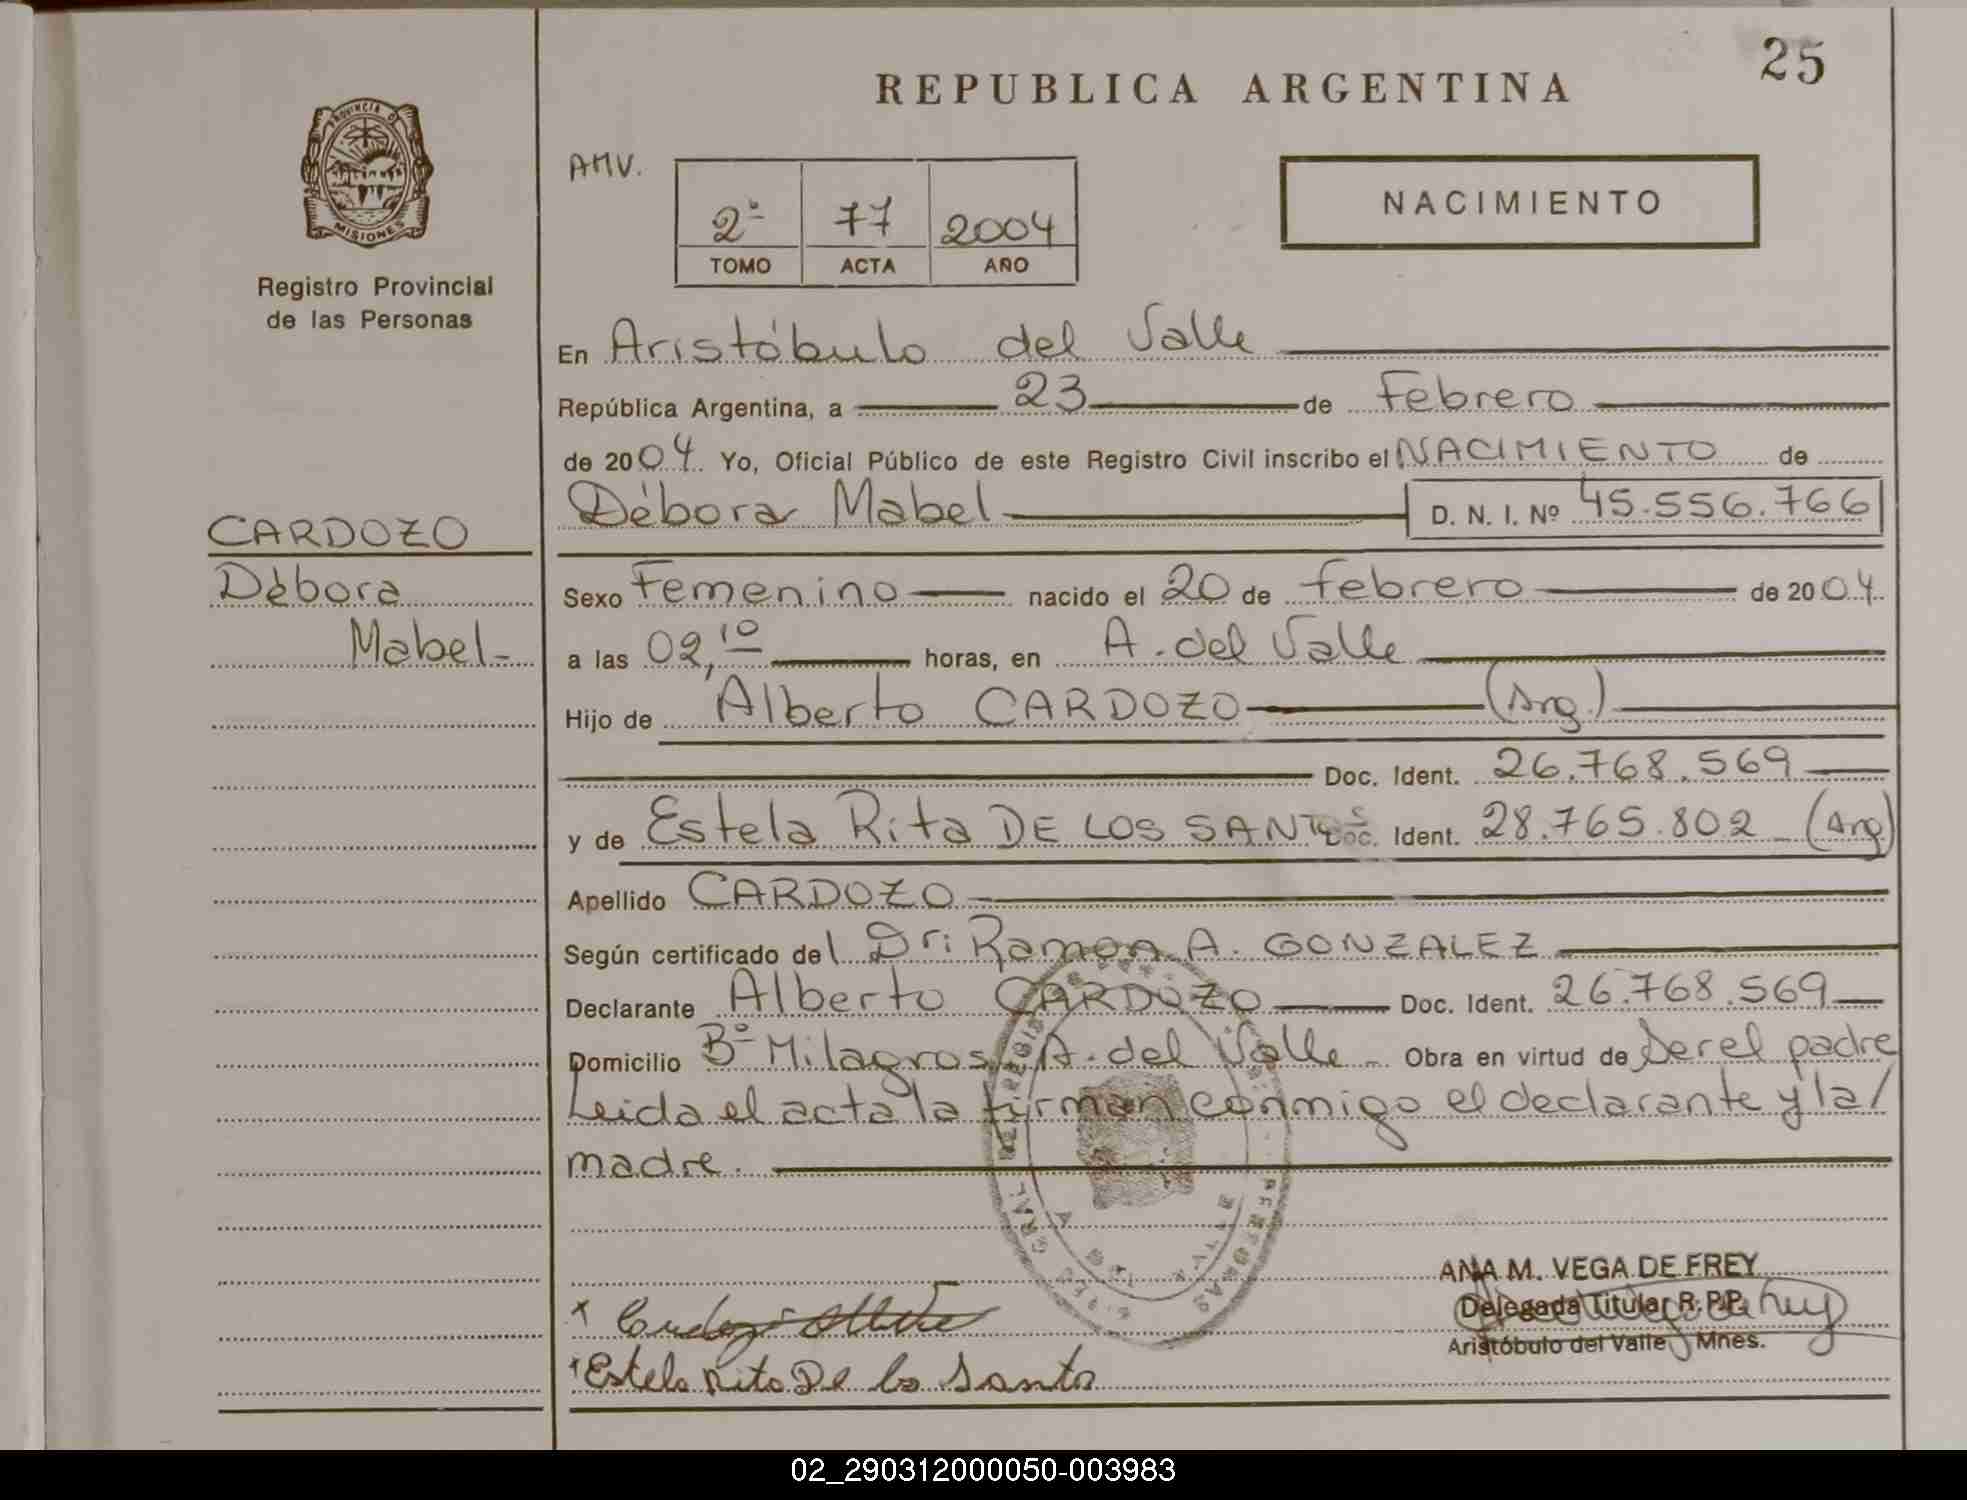 25
REPUBLICA ARGENTINA
PROVINCIA D
MISIONES
Registro Provincial
de las Personas
AMV.
2º 77 2004
TOMO ACTA AÑO
NACIMIENTO
En Aristóbulo del Valle
República Argentina, a 23 de Febrero
de 2004. Yo, Oficial Público de este Registro Civil inscribo el NACIMIENTO de
Débora Mabel D. N. I. Nº 45.556.766
CARDOZO
Débora
Mabel-
Sexo Femenino nacido el 20 de febrero de 2004.
a las 02,10 horas, en A. del Valle
Hijo de Alberto CARDOZO (Arg.)
Doc. Ident. 26.768.569
y de Estela Rita DE LOS SANTOS Doc. Ident. 28.765.802 (Arg)
Apellido CARDOZO
Según certificado del Dr: Ramon A. GONZALEZ
Declarante Alberto CARDOZO Doc. Ident. 26.768.569
Domicilio Bº Milagros A. del Valle - Obra en virtud de Ser el padre
Leida el acta la firman conmigo el declarante y la/
madre.
ANA M. VEGA DE FREY
Delegada Titular R. P.P.
Aristóbulo del Valle Mnes.
x Cardozo
x Estela Rita De lo Santo
02_290312000050-003983